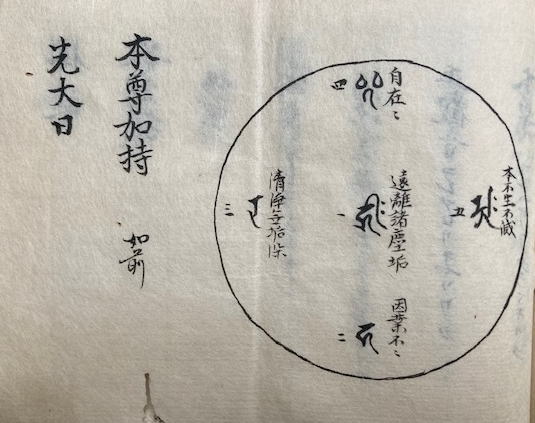 本不生不滅
五
自在〻
四
遠離諸塵垢
一
因業不〻
二
清淨無垢染
三
本尊加持 如前
先大日